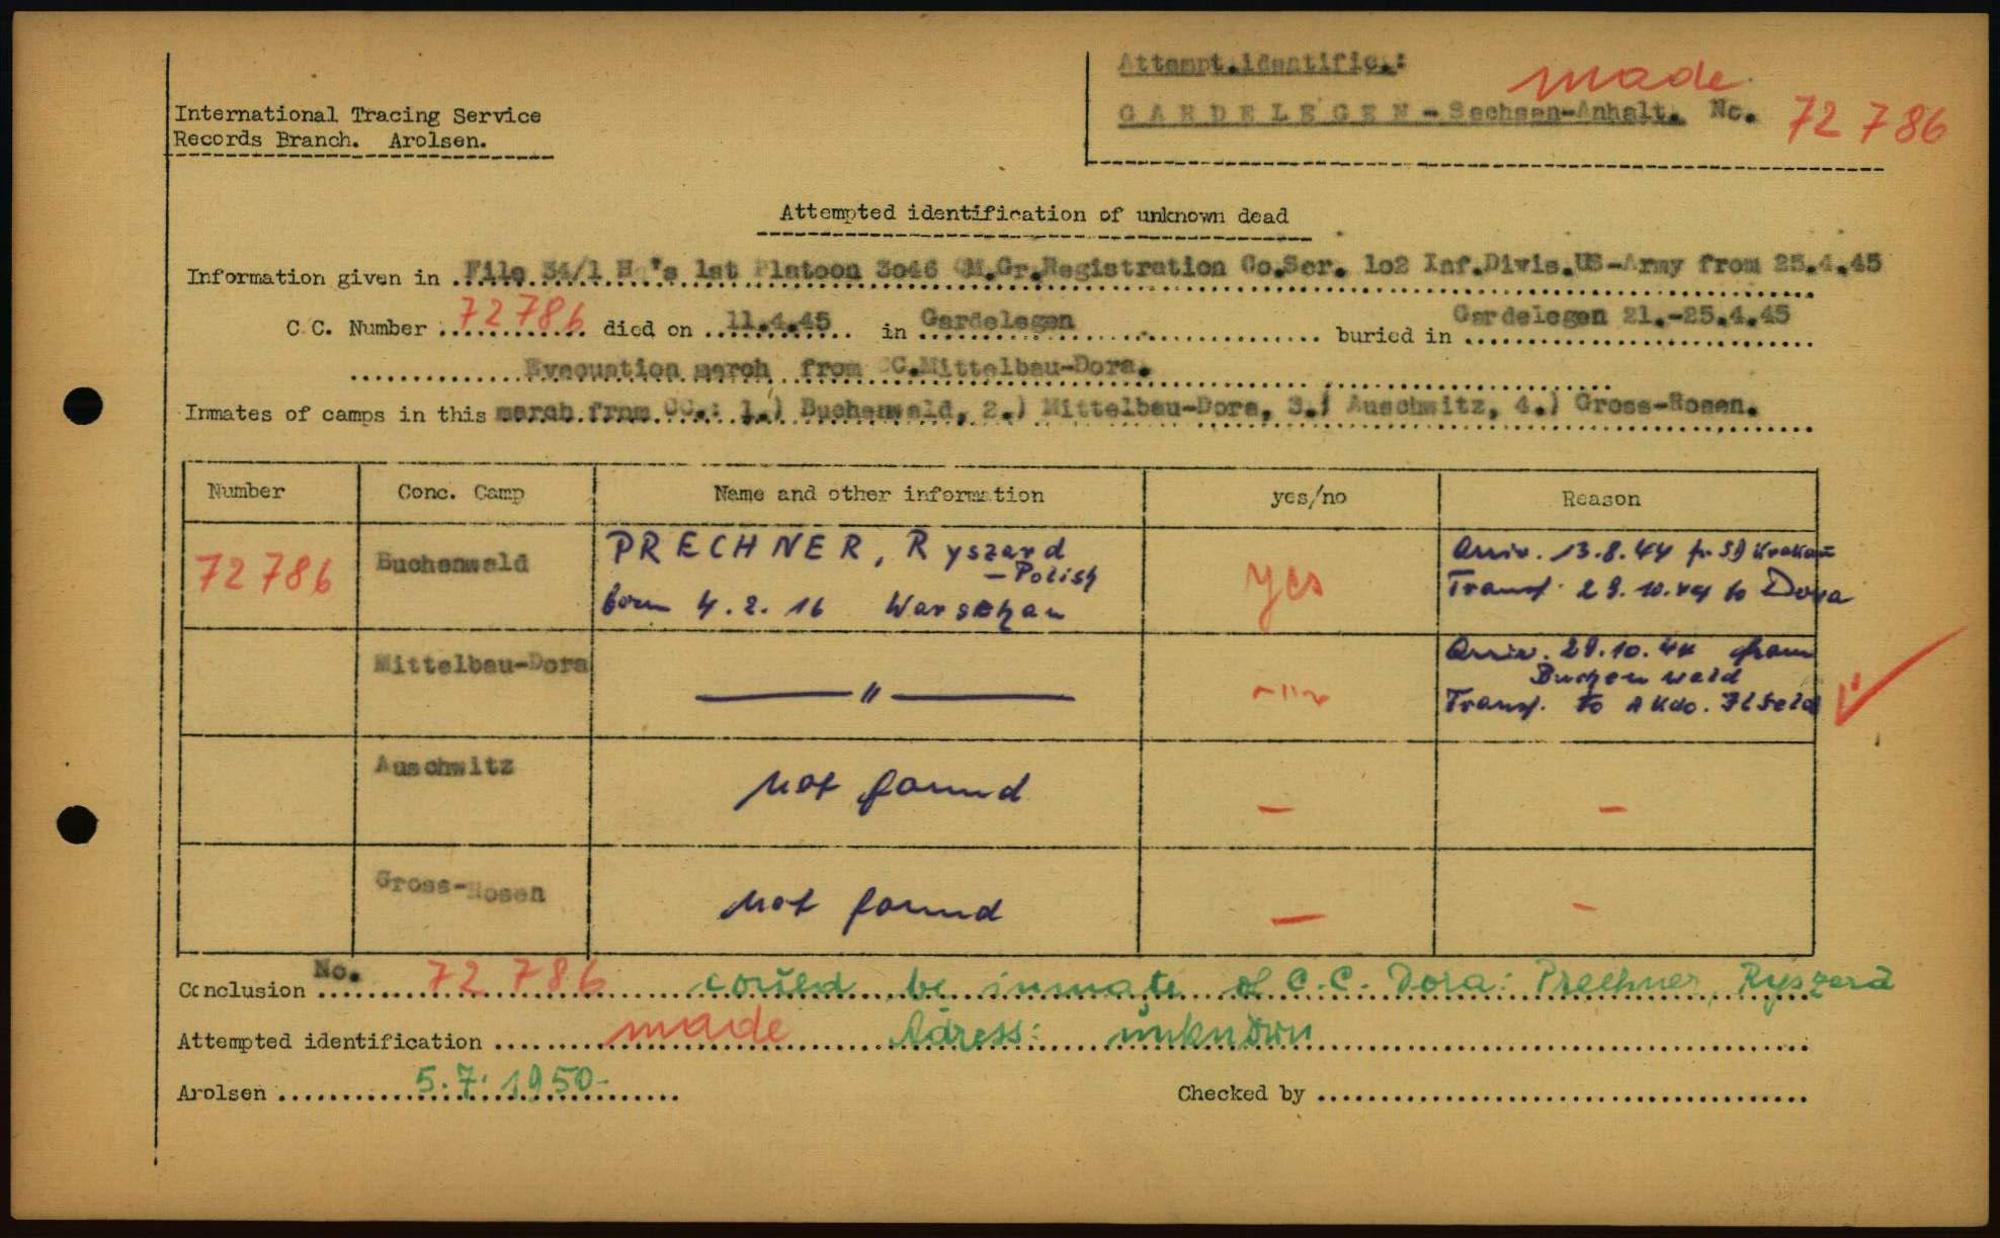 Attempt.identific.:
made
International Tracing Service
GARDELEGEN - Sachsen-Anhalt. No. 72 786
Records Branch. Arolsen.
Attempted identification of unknown dead
Information given in File 34/1 Hq's 1st Platoon 3046 QM.Gr.Registration Co.Ser. 1o2 Inf.Divis.US-Army from 25.4.45
C.C. Number 72786 died on 11.4.45 in Gardelegen buried in Gardelegen 21.-25.4.45
Evacuation march from CC.Mittelbau-Dora.
Inmates of camps in this march from CC.: 1.) Buchenwald, 2.) Mittelbau-Dora, 3.) Auschwitz, 4.) Gross-Rosen.
Number Conc. Camp Name and other information yes/no Reason
72786 Buchenwald PRECHNER, Ryszard yes Arriv. 13.8.44 fr. SD Krakau
- Polish
born 4.2.16 Warschau Transf. 29.10.44 to Dora
Mittelbau-Dora — " — -"- Arriv. 29.10.44 from
Buchenwald
Transf. to AKdo. Ilfeld
Auschwitz not found - -
Gross-Rosen not found - -
Conclusion No. 72 786 could be inmate of C.C. Dora: Prechner, Ryszard
Attempted identification made Adress: unknown
Arolsen 5.7.1950-
Checked by